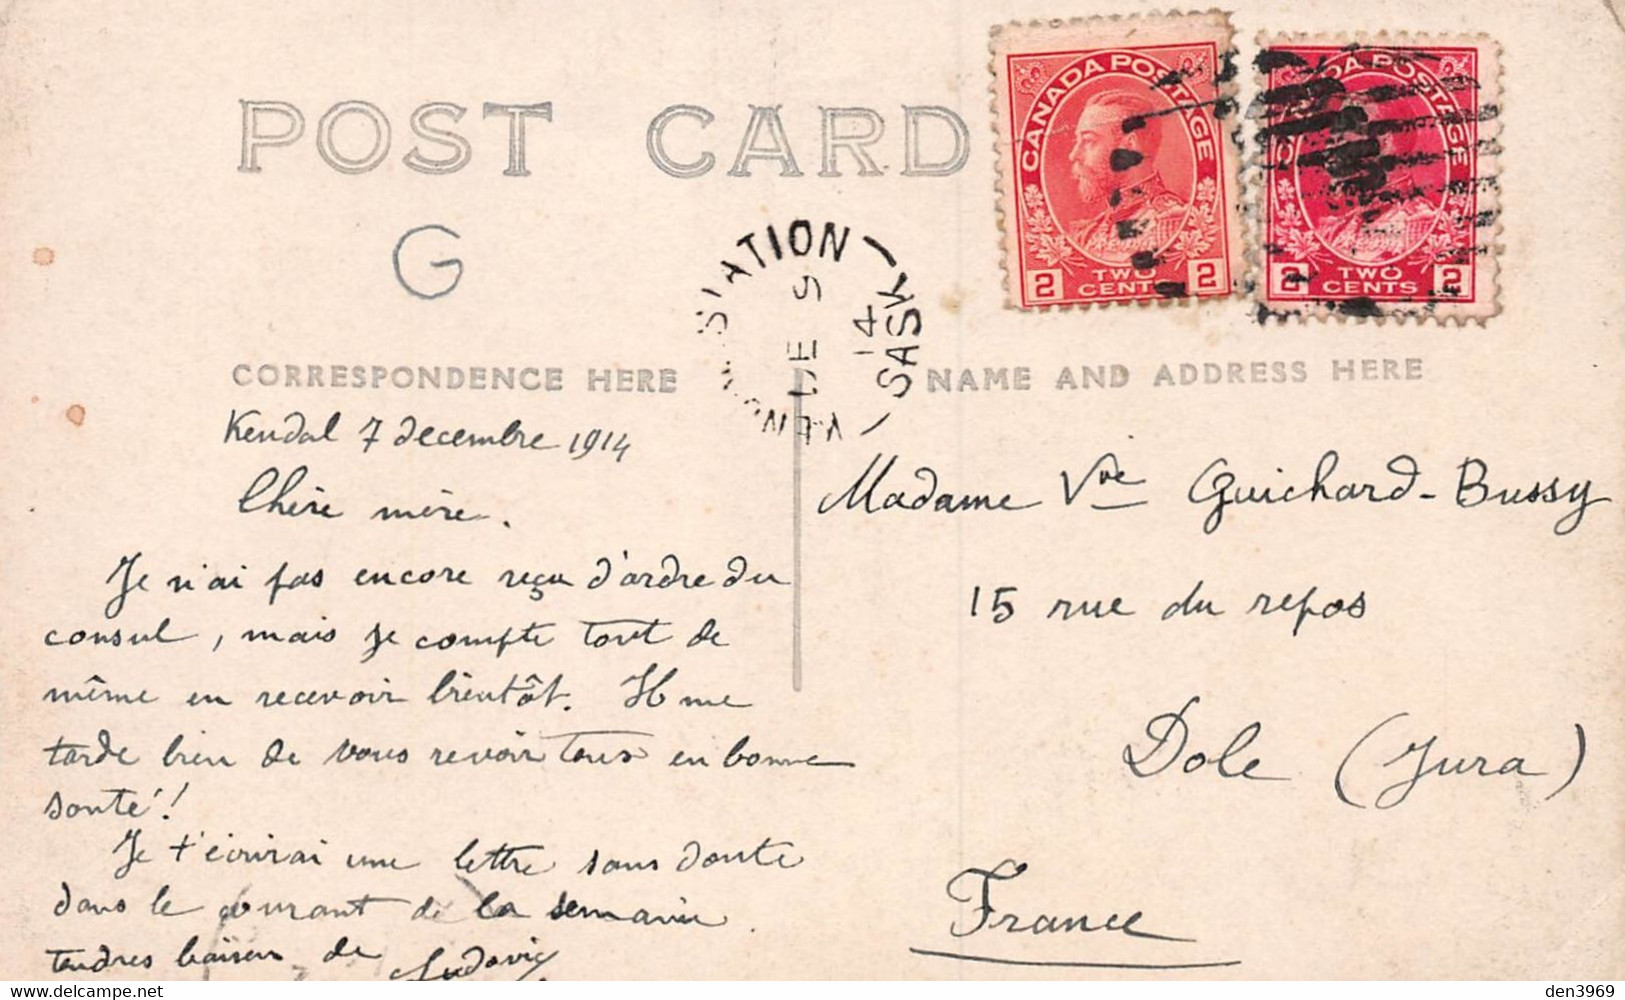 POST CARD
CANADA POSTAGE
2 TWO CENTS 2
DA POSTAGE
2 TWO CENTS 2
G
STATION
SASK
DE 9
14
CORRESPONDENCE HERE
NAME AND ADDRESS HERE
Kendal 7 decembre 1914
Chère mère.
Je n'ai pas encore reçu d'ordre du
consul, mais je compte tout de
même en recevoir bientôt. Il me
tarde bien de vous revoir tous en bonne
santé!
Je t'écrirai une lettre sans doute
dans le courant de la semaine
tendres baisers de Ludovic
Madame Vve Guichard-Bussy
15 rue du repos
Dole (Jura)
France
den3969